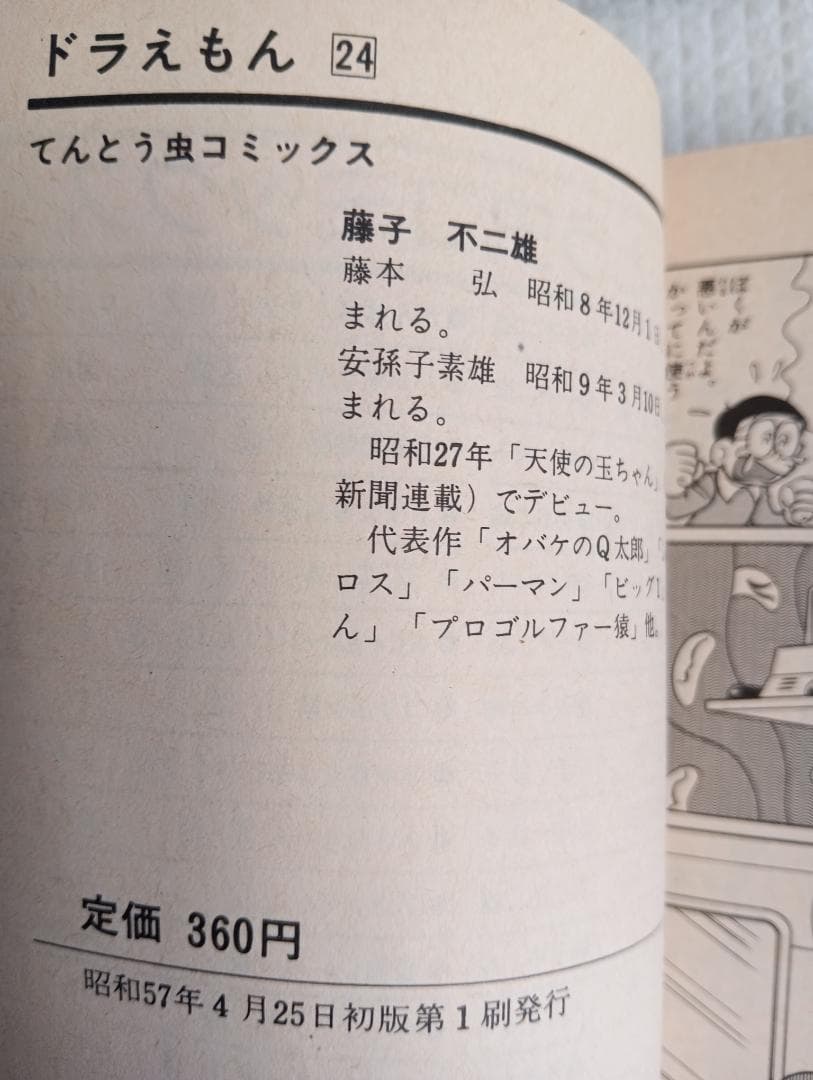 ドラえもん 24
てんとう虫コミックス
藤子 不二雄
藤本 弘 昭和8年12月1日
まれる。
安孫子素雄 昭和9年3月10日
まれる。
昭和27年「天使の玉ちゃん」
新聞連載）でデビュー。
代表作「オバケのQ太郎」
ロス」「パーマン」「ビッグ1」
ん」「プロゴルファー猿」他。
定価 360円
昭和57年4月25日初版第1刷発行
ぼくが
悪いんだよ。
かってに使う